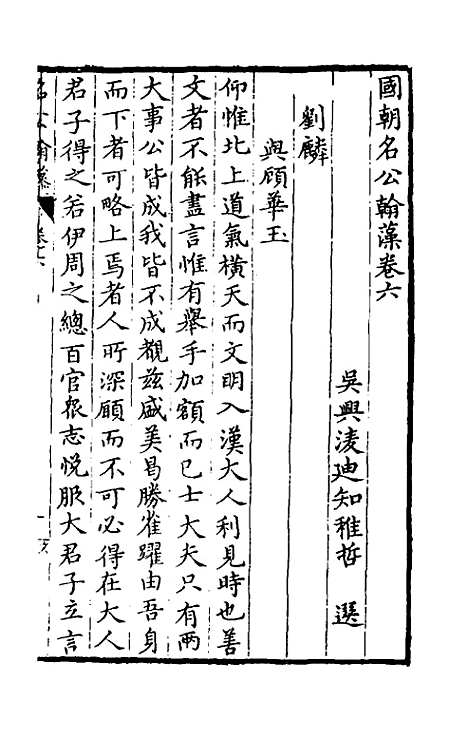 國朝名公翰藻卷六
吳興淩迪知稚哲 選
劉麟
與顧華玉
仰惟北上道氣橫天而文明入漢大人利見時也善
文者不能盡言惟有舉手加額而已士大夫只有兩
大事公皆成我皆不成覩兹盛美曷勝雀躍由吾身
而下者可略上焉者人所深願而不可必得在大人
君子得之若伊周之總百官衆志悅服大君子立言